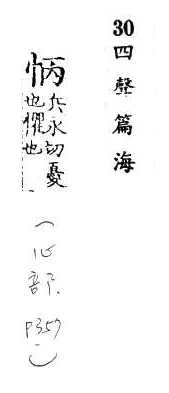 30
四聲篇海
怲兵永切憂
也懼也
(心部
P357)